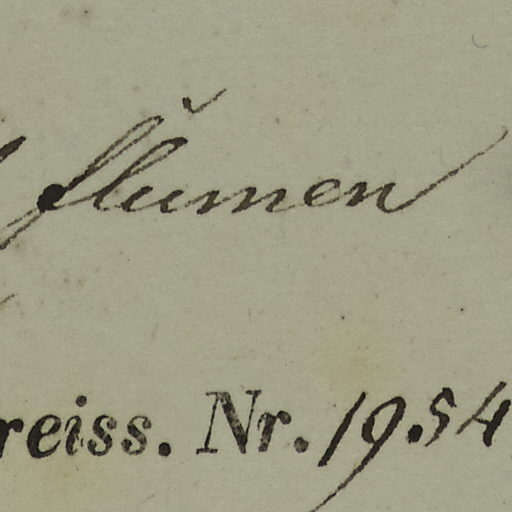 flumen
reiss. Nr. 1954